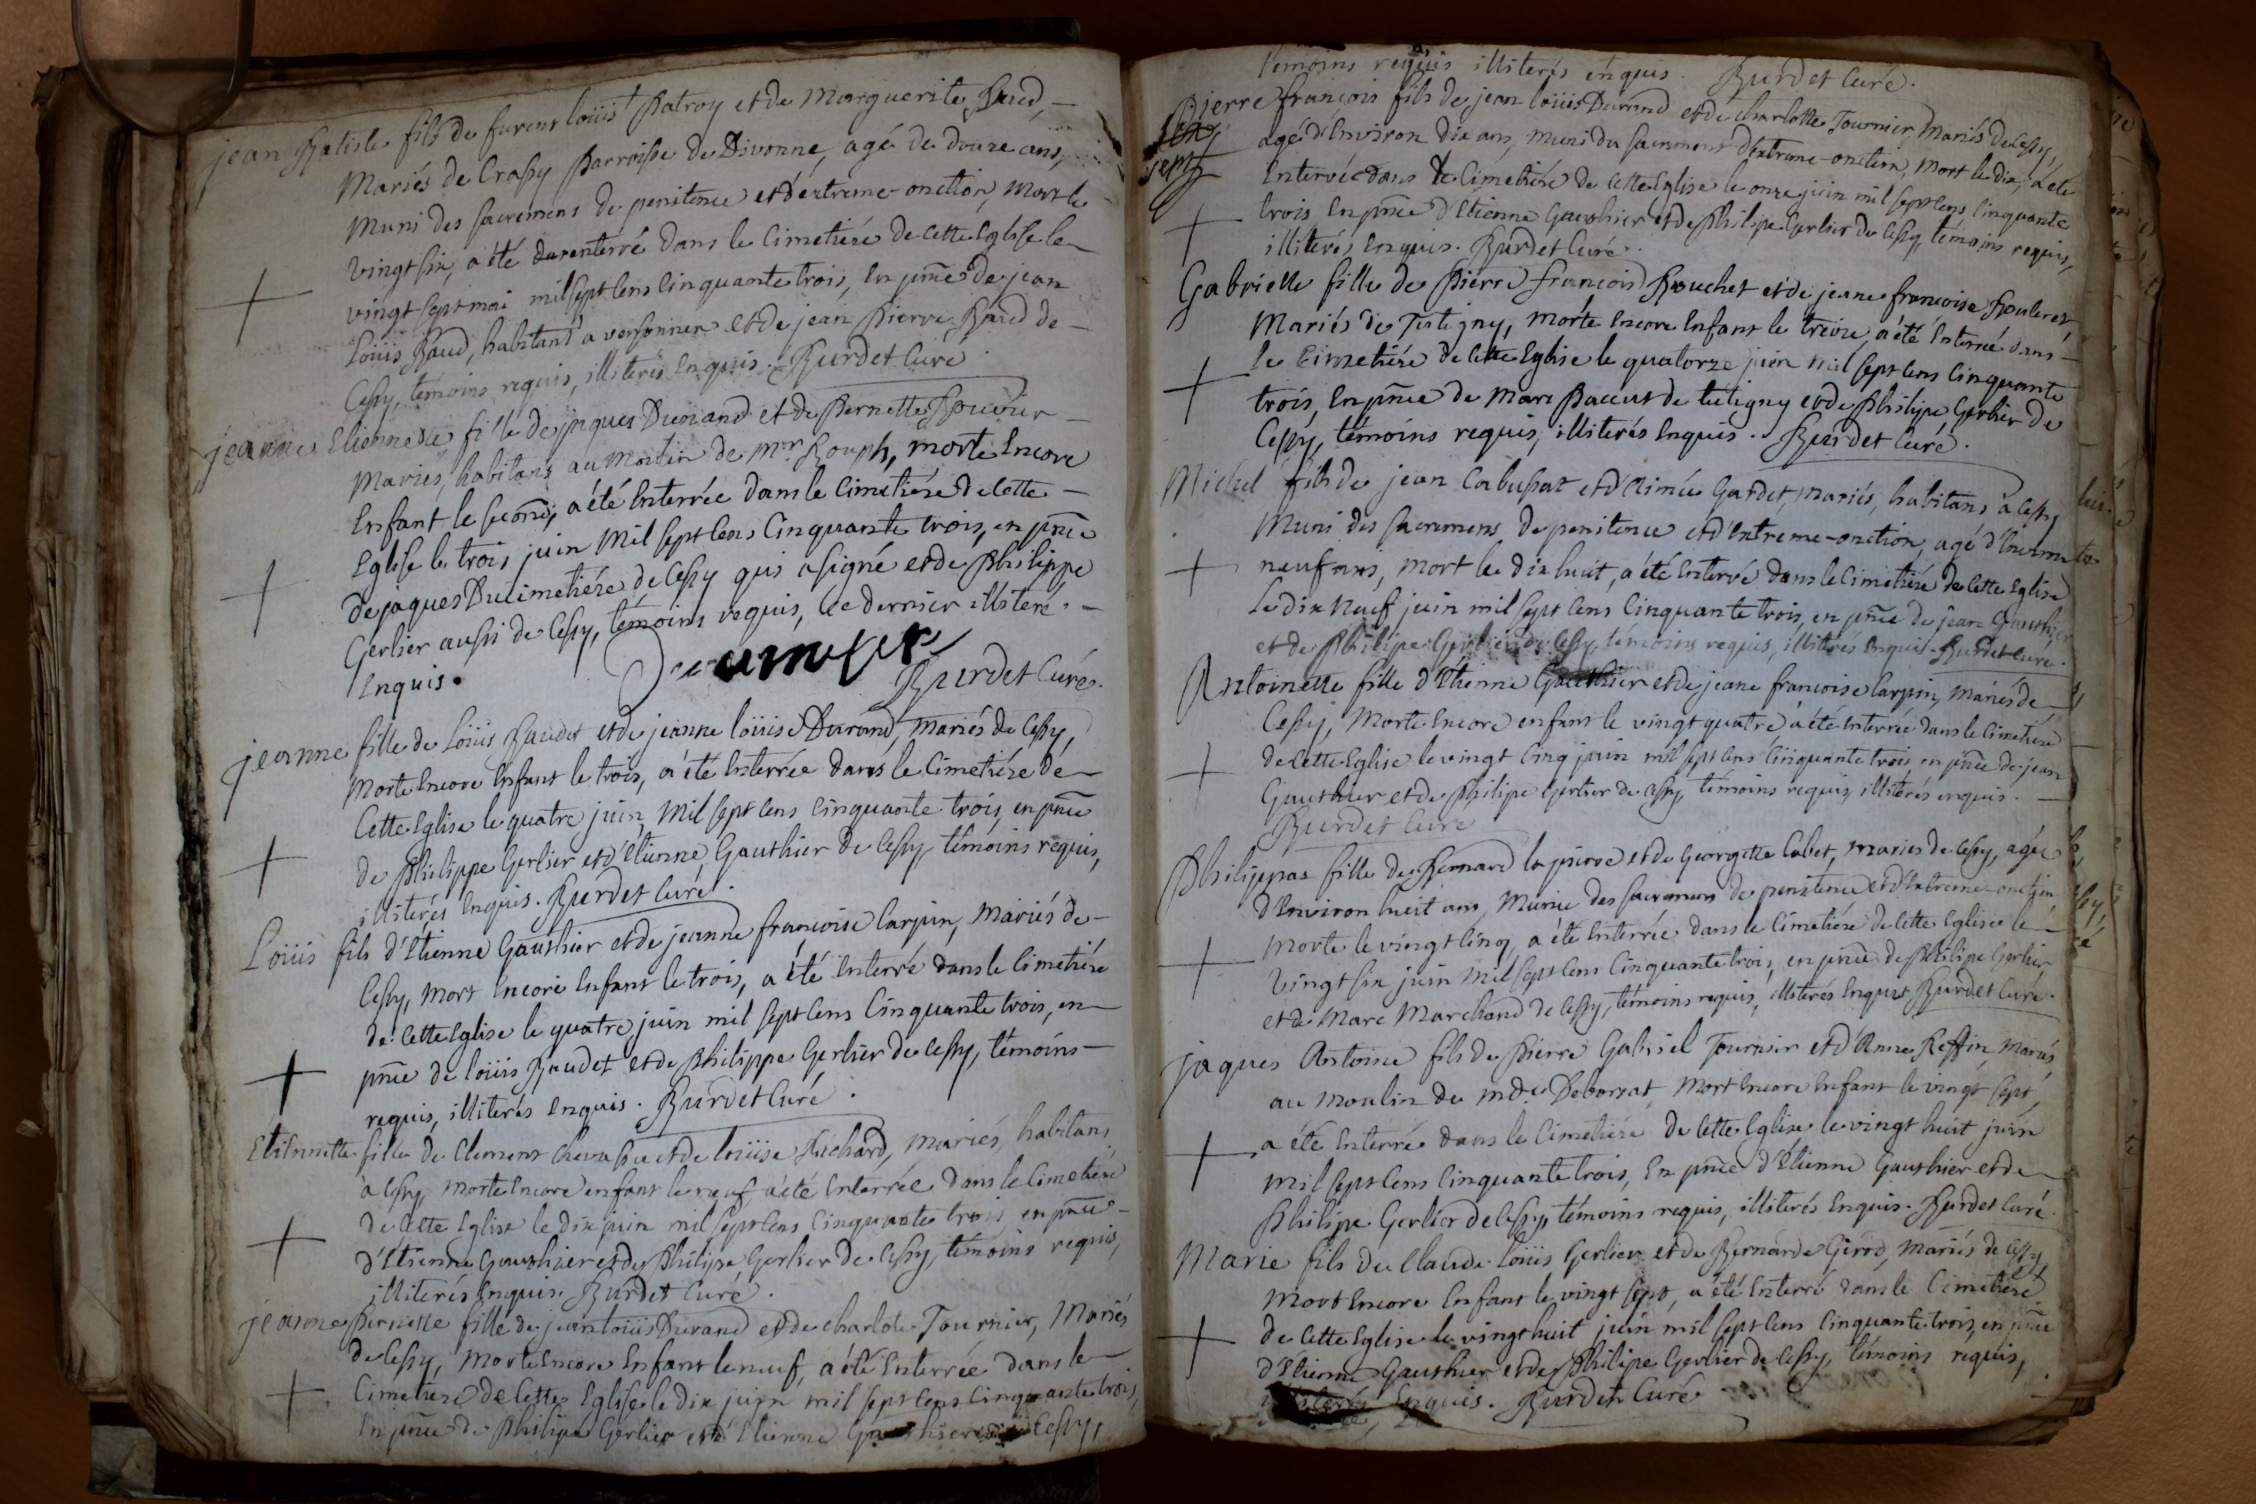 jean Batiste fils de furent loüis Patroy et de Marguerite Baud,
Mariés de Crassy Parroisse de Divonne, agé de douze ans,
Muni des sacremens de penitence et d'extreme-onction, Mort le
vingt six, a été enterré dans le Cimetiére de cette Eglise le
vingt sept mai mil sept cens cinquante trois, en pñce de jean
Loüis Baud, habitant a versonnex et de jean Pierre Baud de
Cessy, témoins requis, illiterés enquis. Burdet Curé
jeanne Etiennette fille de jaques Durand et de Pernette Bouvier
Mariés, habitans au Moulin de Mr. Rouph, morte encore
enfant le second, a été enterrée dans le Cimetiére de cette
Eglise le trois juin Mil sept cens Cinquante trois, en pñce
de jaques Ducimetiére de Cessy qui a signé et de Philippe
Gerlier aussi de Cessy, témoins requis, ce dernier illiteré
enquis.
Burdet Curé.
jeanne fille de Loüis Baudet et de jeanne loüise Durand, mariés de Cessy,
Morte encore enfant le trois, a été enterrée dans le Cimetiére de
Cette Eglise le quatre juin Mil sept cens cinquante trois, en pñce
de Philippe Gerlier et d'Etienne Gauthier de Cessy témoins requis,
illiterés enquis. Burdet Curé.
Loüis fils d'Etienne Gauthier et de jeanne françoise Carpin, Mariés de
Cessy, mort encore enfant le trois, a été enterré dans le Cimetiére
de cette Eglise le quatre juin mil sept cens Cinquante trois, en
pñce de loüis Baudet et de Philippe Gerlier de Cessy, témoins
requis, illiterés enquis. Burdet Curé.
Etiennette fille de Clement Chevassu et de loüise Richard, mariés, habitans
à Cessy morte encore enfant le neuf a été enterrée dans le Cimetiére
de Cette Eglise le dix juin mil sept cens cinquante trois en pñce
d'Etienne Gauthier et de Philipe Gerlier de Cessy, témoins requis,
illiterés enquis. Burdet Curé.
jeanne Pernette fille de jean loüis Durand et de charlote Tournier, Mariés
de Cessy, morte encore enfant le neuf, a été enterrée dans le
Cimetiére de Cette Eglise le dix juin mil sept cens cinquante trois,
en pñce de Philipe Gerlier et d'Etienne Gauthier de Cessy,
témoins requis illiterés enquis. Burdet Curé.
Pierre françois fils de jean loüis Durand et de charlotte Tournier, Mariés de Cessy,
agé d'environ dix ans, muni du sacrement d'extrème-onction, mort le dix, a été
Enterré dans le Cimetiére de cette Eglise le onze juin mil sept cens cinquante
trois en pñce d'Etienne Gauthier et de Philipe Gerlier de Cessy, témoins requis,
illiterés enquis. Burdet Curé.
Gabrielle fille de Pierre françois Bouchet et de jeane françoise Rouleret,
Mariés de Tutigny, morte encore enfant le treize, a été enterrée dans
le Cimetiére de cette Eglise le quatorze juin mil sept cens cinquante
trois, en pñce de Marc Paccut de tutigny et de Philipe Gerlier de
Cessy, témoins requis, illiterés enquis. Burdet Curé.
Michel fils de jean Cabussat et d'Aimée Gardet, mariés, habitans à Cessy
Muni des sacremens de penitence et d'extreme-onction, agé d'environ
neuf ans, mort le dix huit, a été enterré dans le Cimetiére de cette Eglise
Le dix Neuf juin mil sept cens cinquante trois, en pñce de jean Gauthier
et de Philipe Gerlier de Cessy, témoins requis, illiterés enquis. Burdet Curé.
Antoinette fille d'Etienne Gauthier et de jeane françoise Carpin, mariés de
Cessy, Morte encore enfant le vingt quatre a été enterrée dans le Cimetiére
de cette Eglise le vingt cinq juin mil sept cens cinquante trois en pñce de jean
Gauthier et de Philipe Gerlier de Cessy témoins requis, illiterés enquis.
Burdet Curé
Philippaz fille de Bernard la pierre et de Georgette Cabet, mariés de Cessy, agée
d'environ huit ans, Munie des sacremens de penitence et d'extreme-onction
Morte le vingt cinq, a été enterrée dans le Cimetiére de cette Eglise le
vingt six juin mil sept cens cinquante trois, en pñce de Philipe Gerlier
et de Marc Marchand de Cessy, témoins requis, illiterés enquis Burdet Curé.
jaques Antoine fils de Pierre Gabriel Tournier et d'Anne Reffin, Mariés
au Moulin de md.e Deborsat, Mort encore enfant le vingt sept,
a été enterré dans le Cimetiére de Cette Eglise le vingt huit juin
mil sept cens cinquante trois, en pñce d'Etienne Gauthier et de
Philipe Gerlier de Cessy, témoins requis, illiterés enquis. Burdet Curé.
Marie fils de Claude Loüis Gerlier et de Bernarde Girod, mariés de Cessy,
mort encore enfant le vingt sept, a été enterré dans le Cimetiére
de Cette Eglise le vingt huit juin mil sept cens cinquante trois, en pñce
d'Etienne Gauthier et de Philipe Gerlier de Cessy, témoins requis,
illiterés, enquis. Burdet Curé